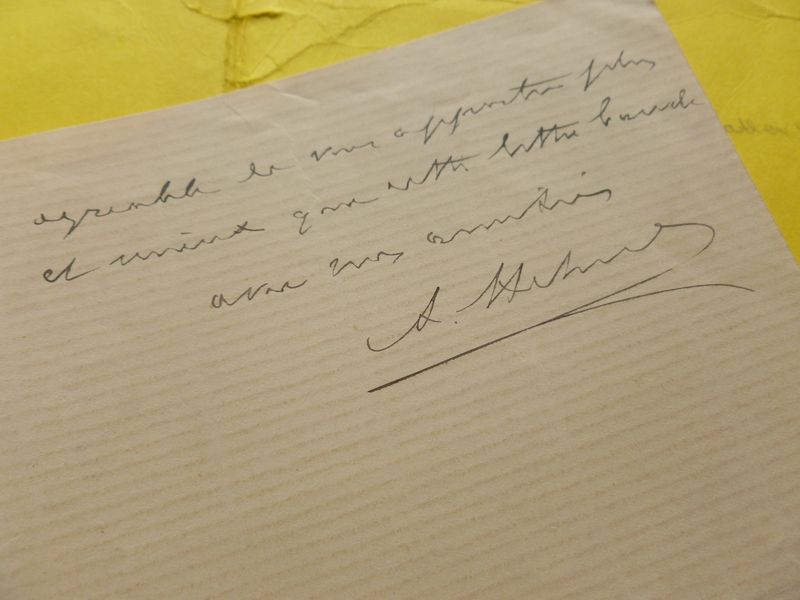 agréable de vous apporter plus
et mieux que cette lettre
avec mes amitiés
A.